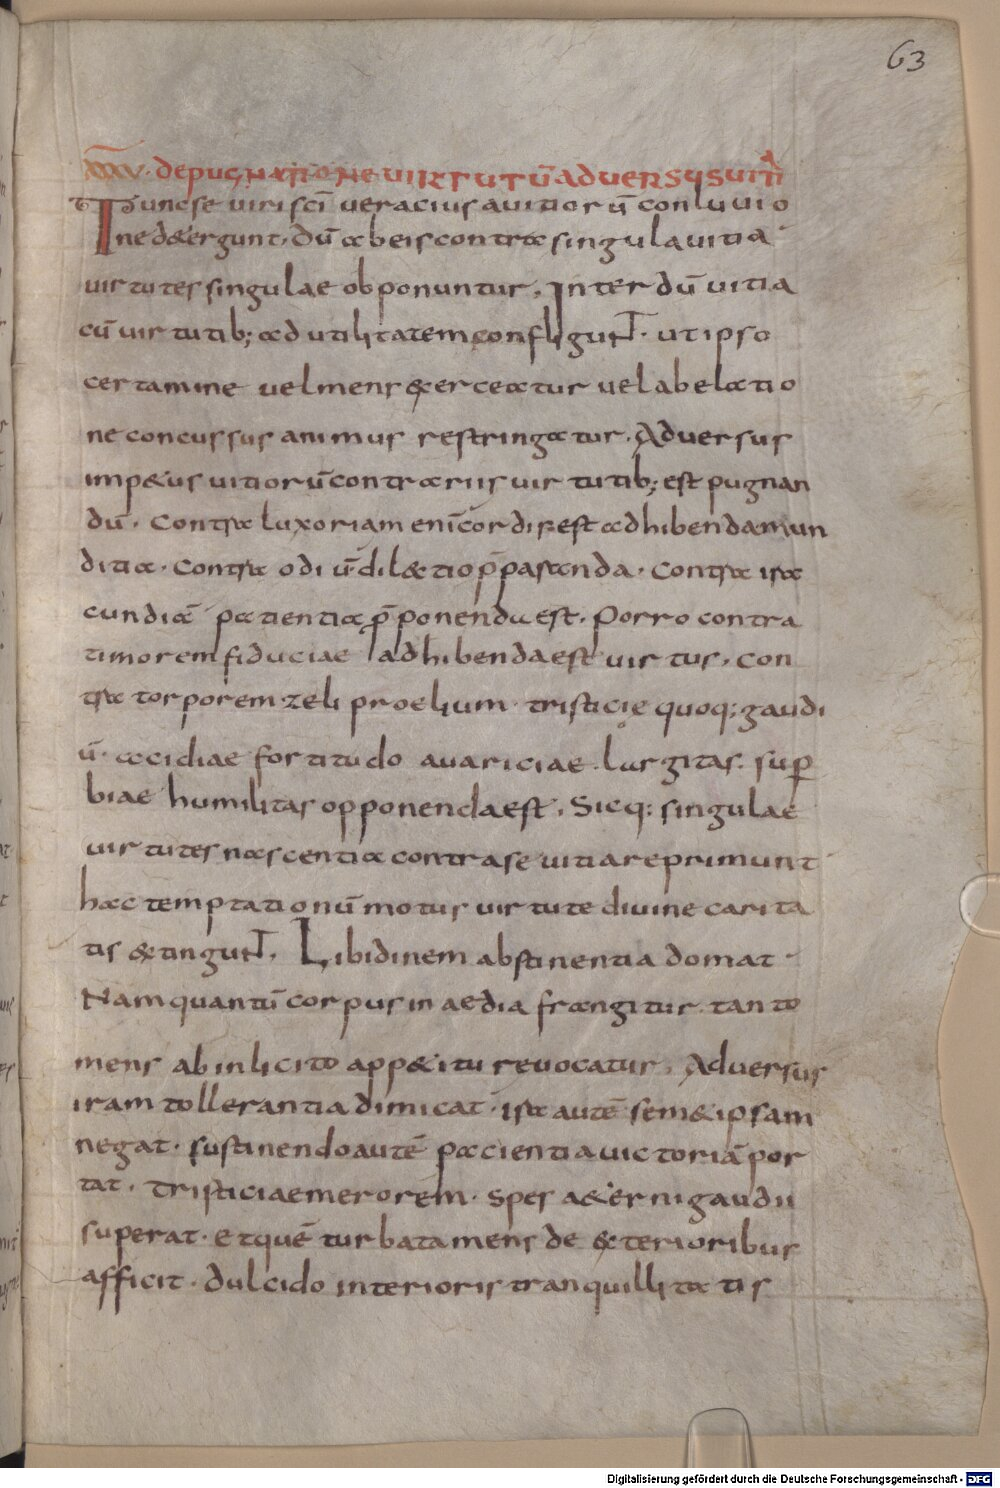 63
XXXV. de pugnatione uirtutū aduersus uitia
Tunc se uiri sc̄i ueracius a uitiorū conluuio
ne d&ergunt, dū ab eis contra singula uitia
uirtutes singulae obponuntur. Interdū uitia
cū uirtutib; ad utilitatem confligunt. ut ipso
certamine uel mens &erceatur uel ab elatio
ne concussus animus restringatur. Aduersus
imp&us uitiorū contrariis uirtutib; est pugnan
dū. Contra luxoriam enī cordis est adhibenda mun
ditia. Contra odiū dil&tio p̄paranda. Contra ira
cundiā patientia p̄ponendu est. Porro contra
timorem fiduciae adhibenda est uirtus. con
tra torporem zeli proelium. tristicie quoq; gaudi
ū. accidiae fortitudo auariciae largitas. sup̱
biae humilitas opponenda est. Sicq; singulae
uirtutes nascentia contra se uitia reprimunt
hac temptationū motus uirtute diuine carita
tis &tingunt. Libidinem abstinentia domat.
Nam quantū corpus inaedia frangitur tanto
mens ab inlicito app&itu reuocatur. Aduersus
iram tollerantia dimicat. ira autē sem&ipsam
negat. sustinendo autē paciencia uictoriā por
tat. Tristiciae merorem. spes a&erni gaudii
superat. Et quē turbata mens de &terioribus
afficit. dulcido interioris tranquillitatis
Digitalisierung gefördert durch die Deutsche Forschungsgemeinschaft - DFG